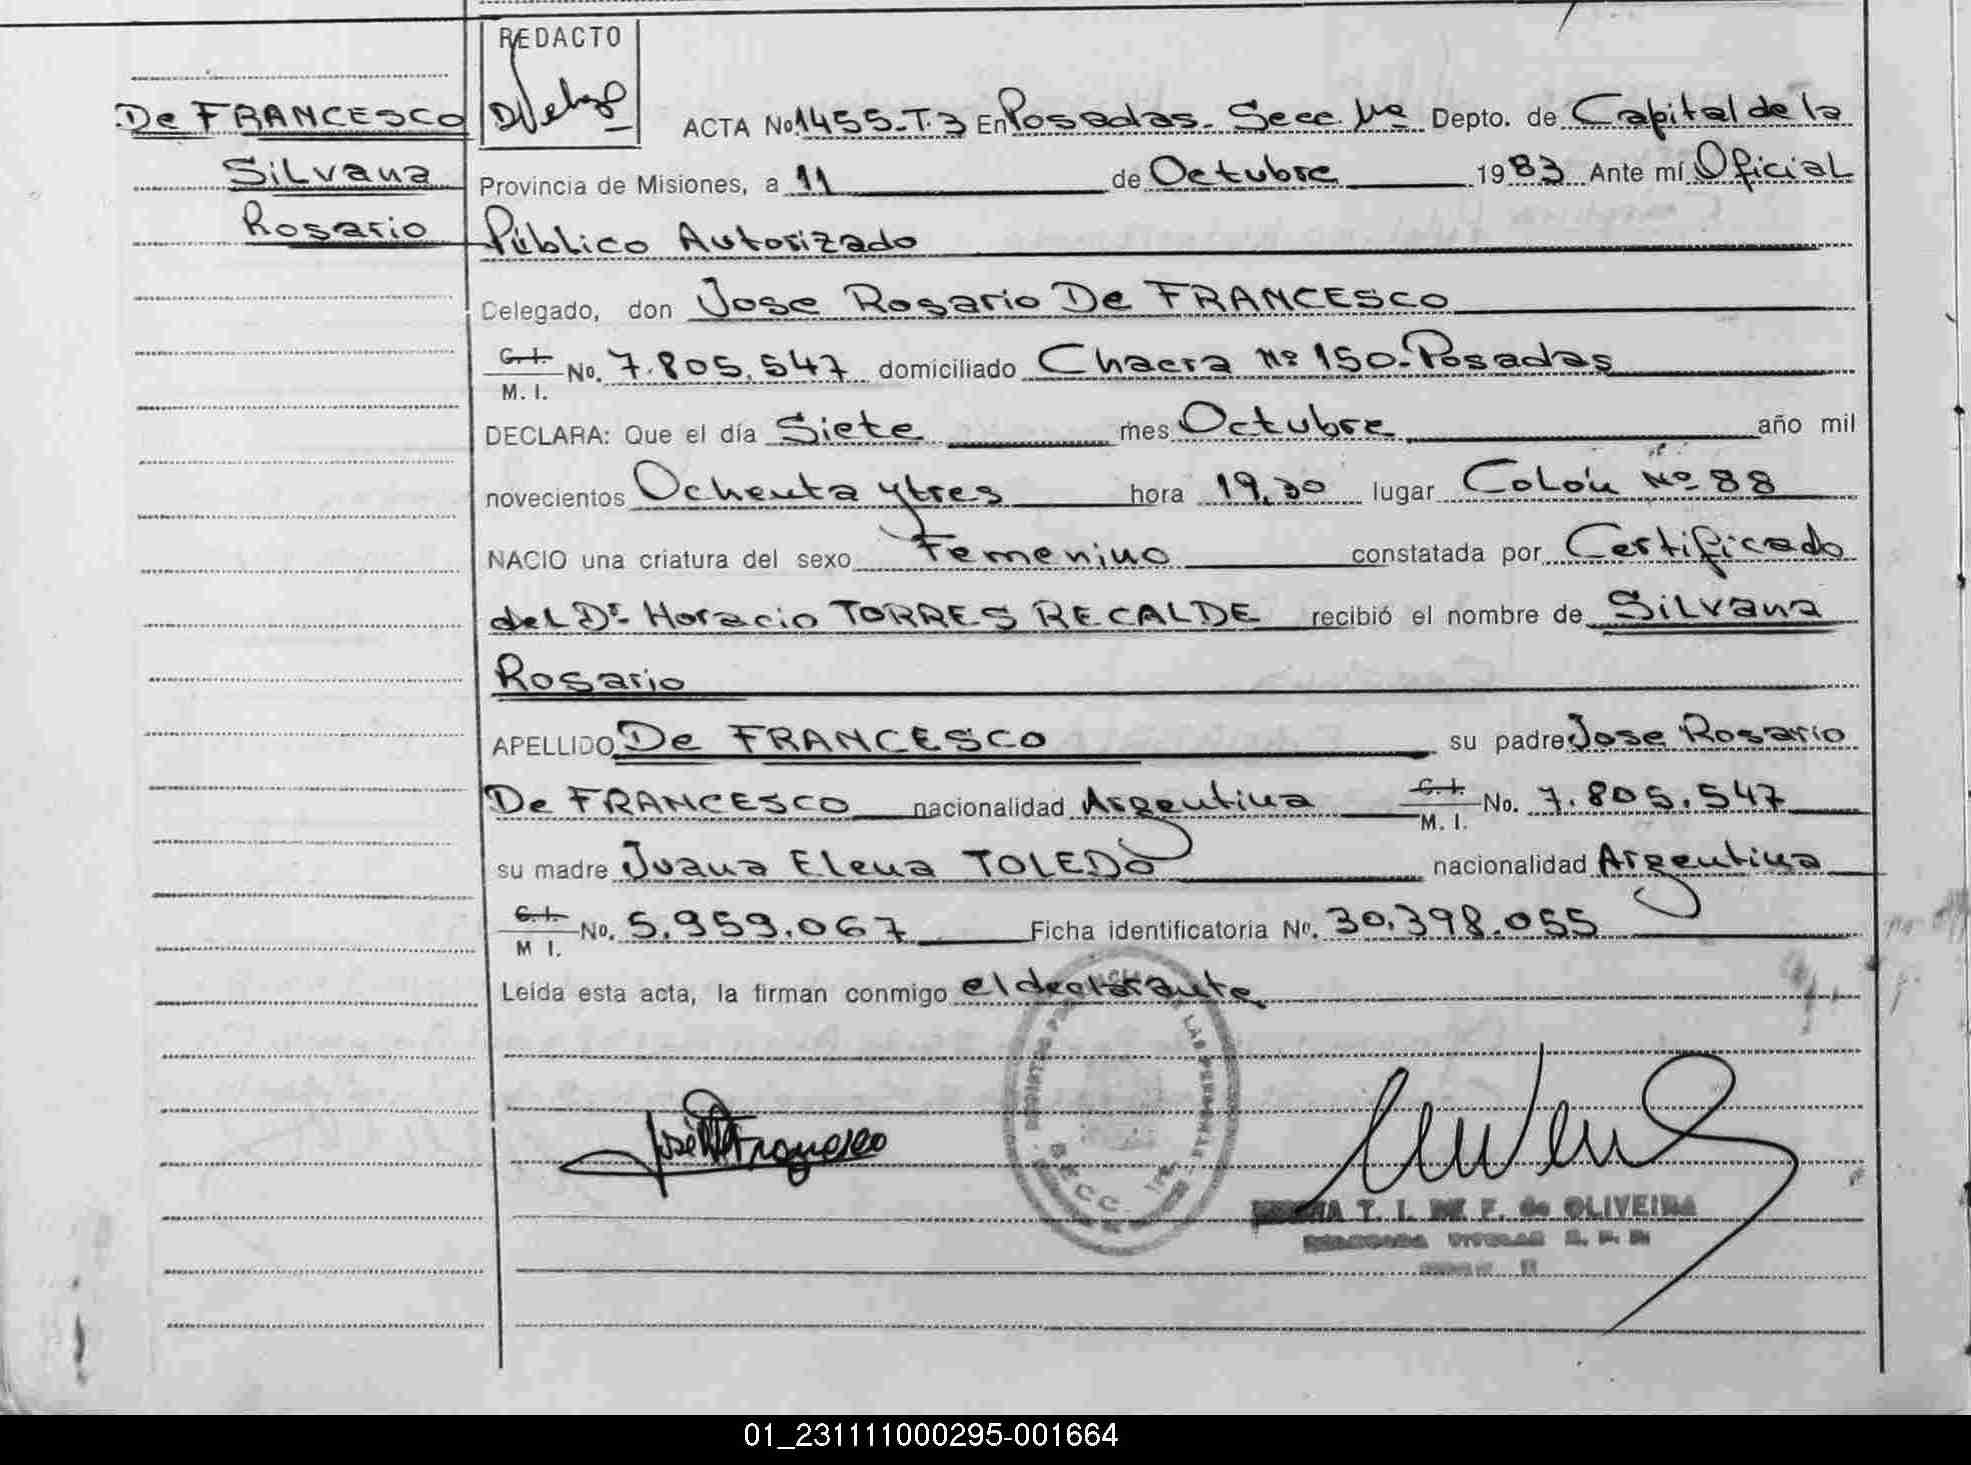 REDACTO
De FRANCESCO
Silvana
Rosario
ACTA No. 1455-T.3 En Posadas. Secc. 1ra Depto. de Capital de la
Provincia de Misiones, a 11 de Octubre 1983 Ante mí Oficial
Público Autorizado
Delegado, don Jose Rosario De FRANCESCO
C. I.
M. I. No. 7.805.547 domiciliado Chacra Nº 150-Posadas
DECLARA: Que el día Siete mes Octubre año mil
novecientos Ochenta y tres hora 19,30 lugar Colón Nº 88
NACIO una criatura del sexo Femenino constatada por Certificado
del Dr. Horacio TORRES RECALDE recibió el nombre de Silvana
Rosario
APELLIDO De FRANCESCO su padre Jose Rosario
De FRANCESCO nacionalidad Argentina C. I.
M. I. No. 7.805.547
su madre Juana Elena TOLEDO nacionalidad Argentina
C. I.
M I. No. 5.959.067 Ficha identificatoria Nº. 30.398.055
Leída esta acta, la firman conmigo el declarante
REGISTRO LAS PERSONAS
SECC.
T. I. DE F. de OLIVEIRA
TITULAR
01_231111000295-001664